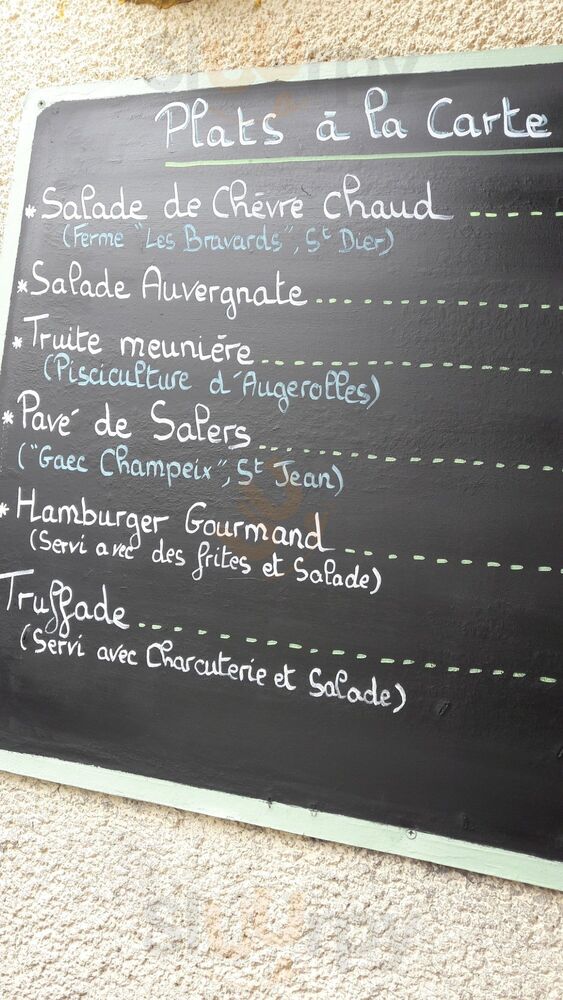 Plats à la Carte
* Salade de Chèvre chaud -----
(Ferme "Les Bravards", St Dier)
* Salade Auvergnate
* Truite meunière
(Pisciculture d'Augerolles)
* Pavé de Salers
("Gaec Champeix", St Jean)
* Hamburger Gourmand
(Servi avec des frites et Salade)
Truffade
(Servi avec Charcuterie et Salade)